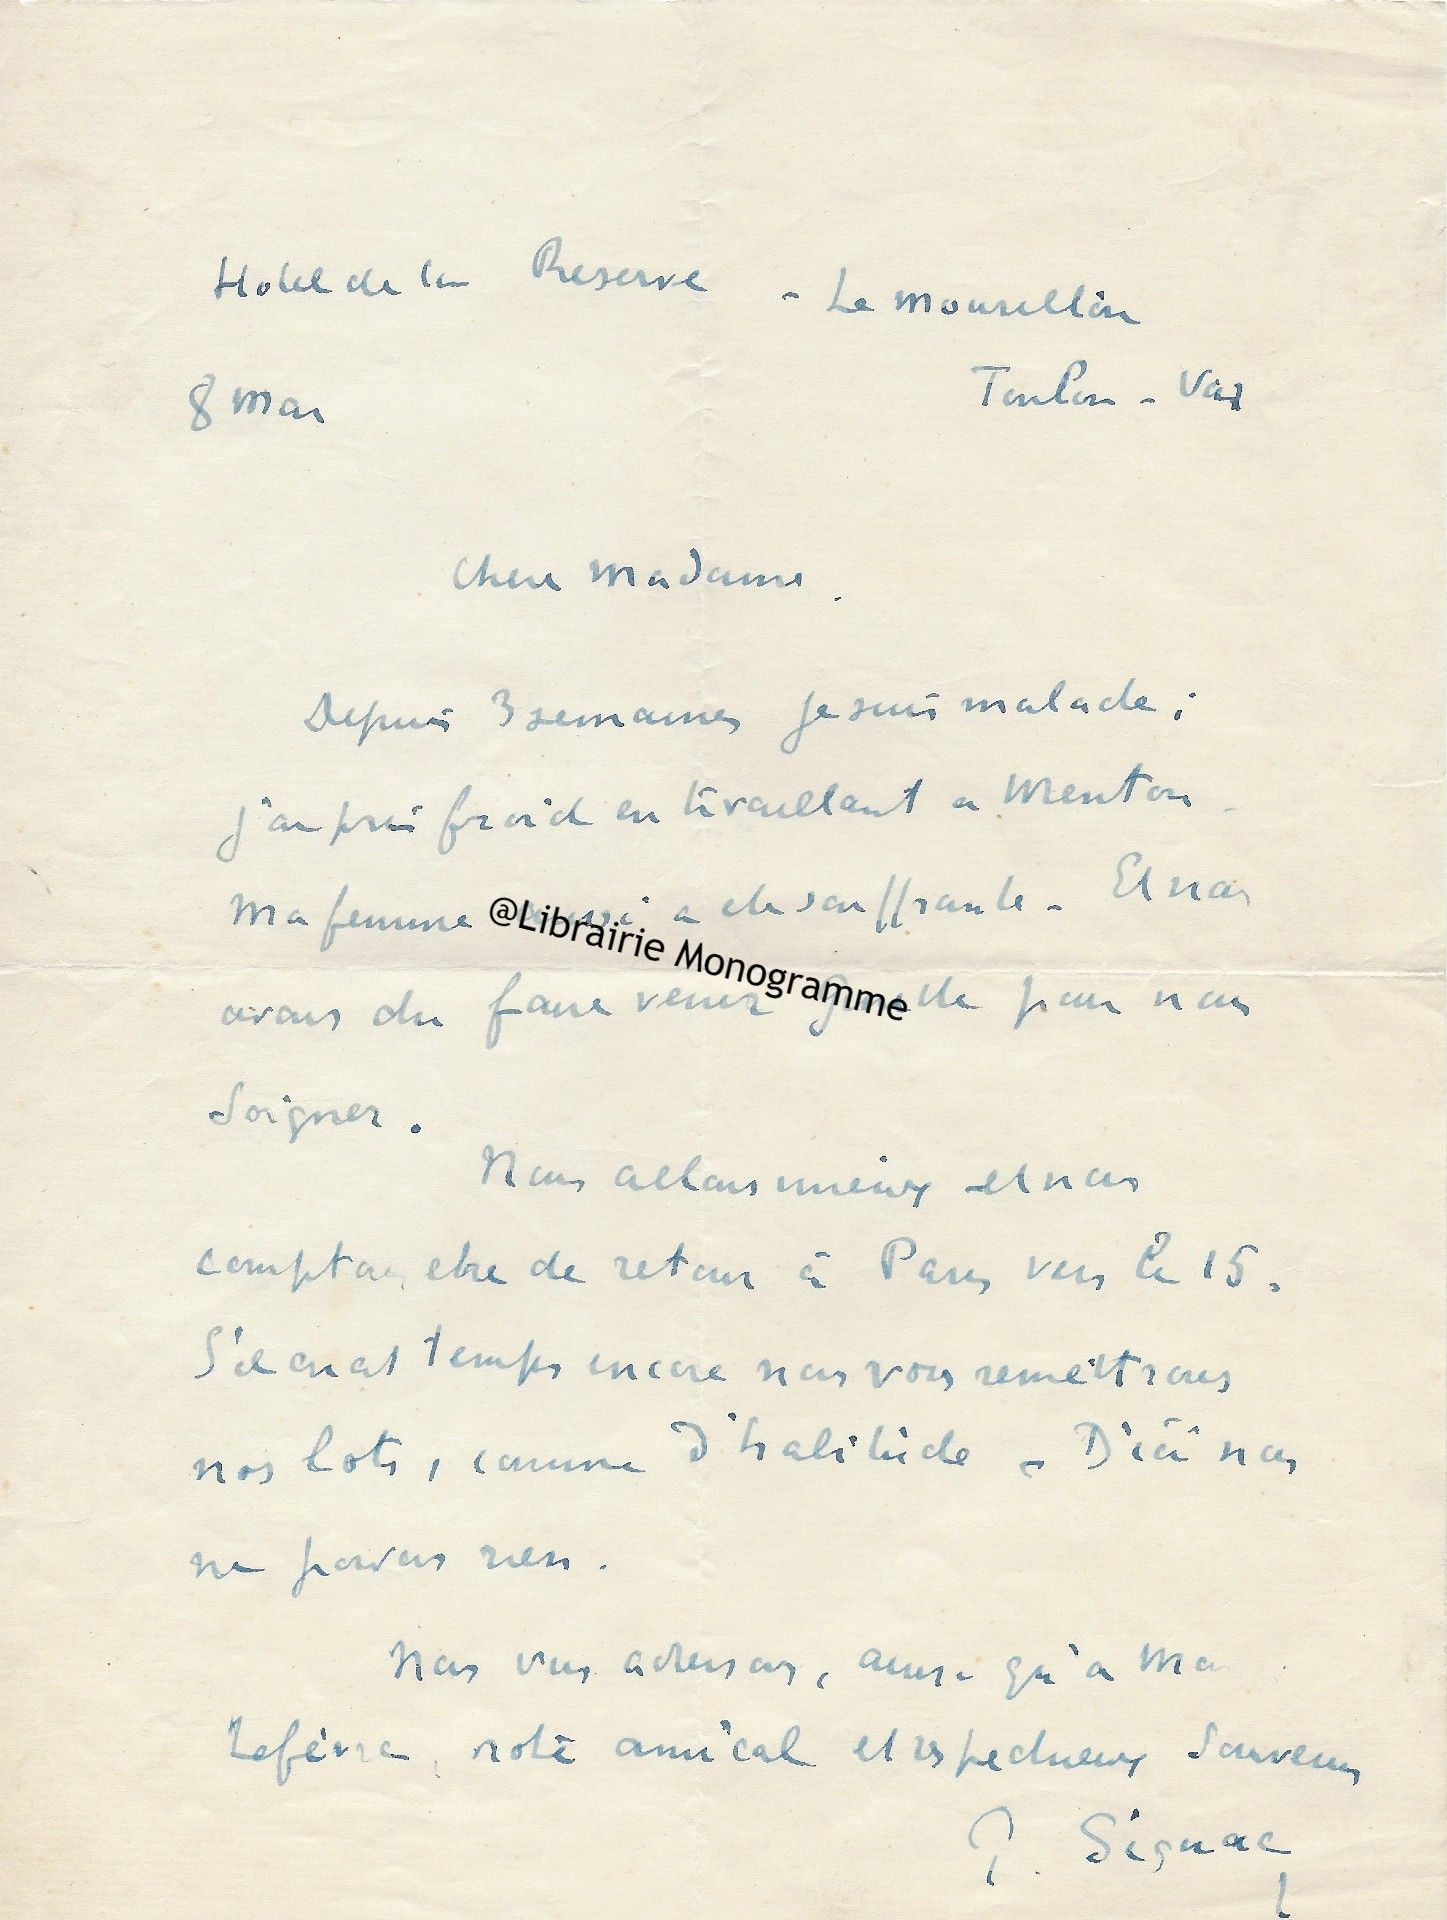 Hotel de la Reserve - Le Mourillon
8 Mai Toulon - Var
Chere Madame.
Depuis 3 semaines je suis malade ;
j'ai pris froid en travaillant a Menton -
Ma femme aussi a ete souffrante - Et nous
@Librairie Monogramme
avons du faire venir pour nous
soigner.
Nous allons mieux et nous
comptons etre de retour à Paris vers le 15.
S'il en est temps encore nous vous remettrons
nos lots, comme d'habitude - D'ici nous
ne pouvons rien.
Nous vous adressons, ainsi qu'a
Lefévre, notre amical et respectueux souvenir
P. Signac